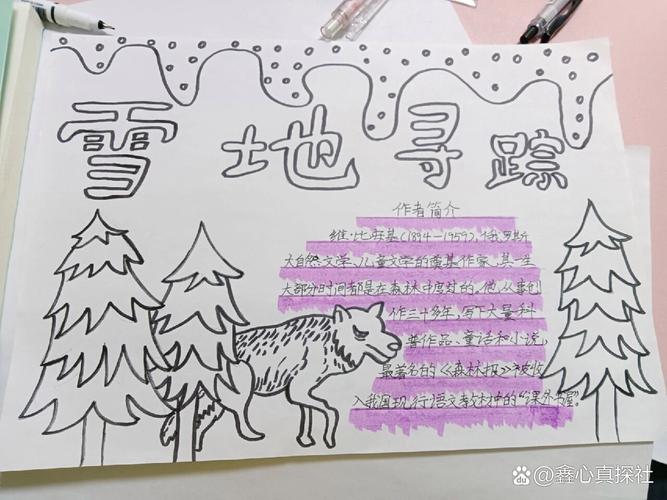 雪地寻踪
作者简介
维·比安基(1894—1959),俄罗斯
大自然文学、儿童文学的奠基作家,其一生
大部分时间都是在森林中度过的。他从事创
作三十多年,写下大量科
普作品、童话和小说,
最著名的《森林报》被收
入我国现行语文教材中的“课外书屋”。
Baidu 鑫心真探社